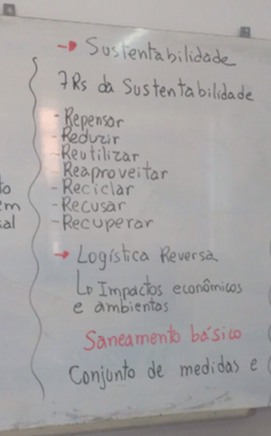 → Sustentabilidade
7Rs da Sustentabilidade
- Repensar
- Reduzir
- Reutilizar
- Reaproveitar
- Reciclar
- Recusar
- Recuperar
→ Logística Reversa
↳ Impactos econômicos
e ambientas
Saneamento básico
Conjunto de medidas e